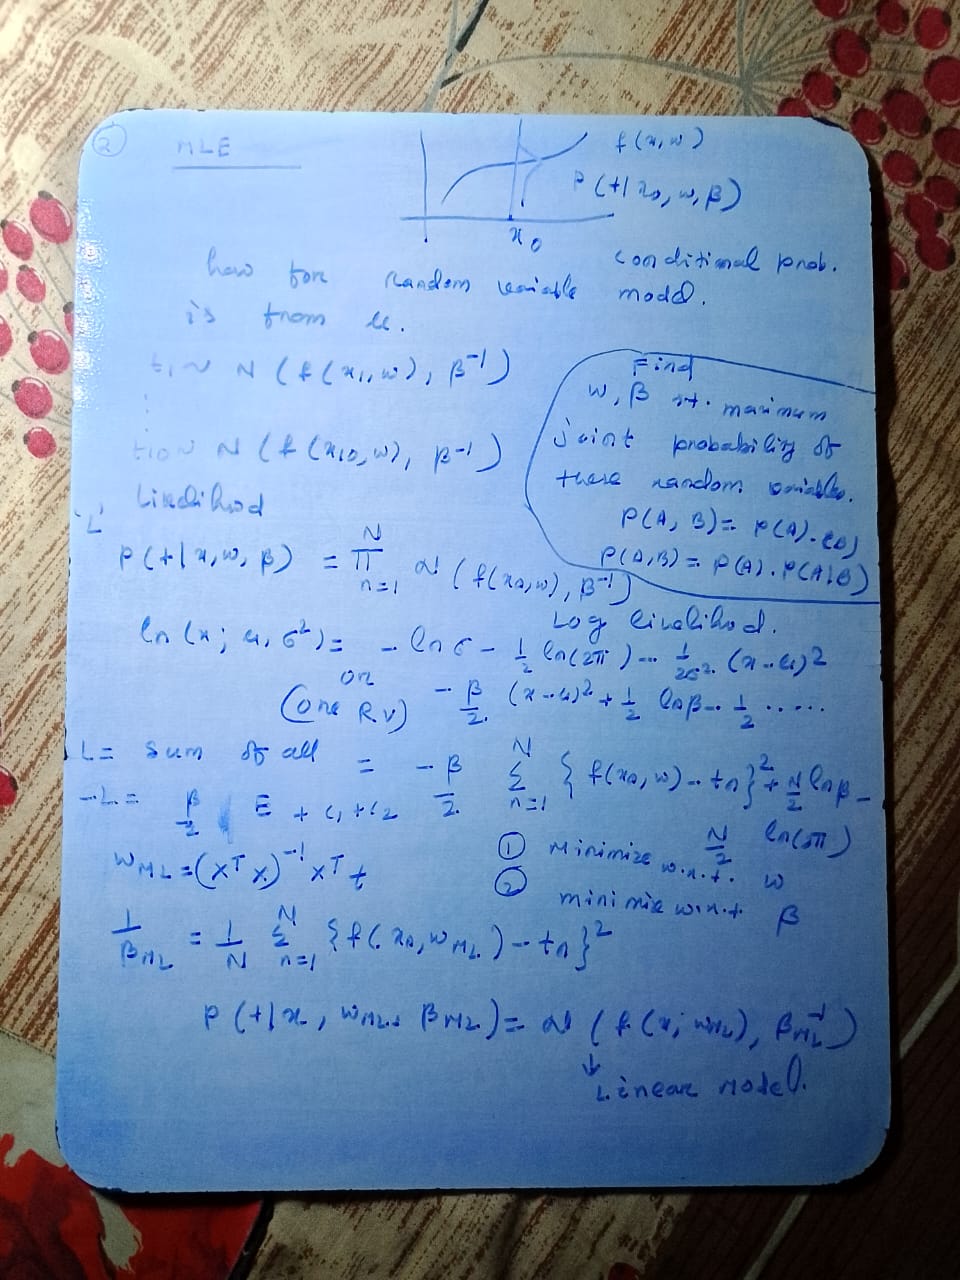 2
MLE
f(x,w)
P(t|x₀,w,β)
x₀
conditional prob.
how for random variable model.
is from u.
t₁ ~ N(f(x₁,w), β⁻¹)
⋮
t₁₀ ~ N(f(x₁₀,w), β⁻¹)
Find
w, β st. maximum
joint probability of
these random variables.
P(A, B) = P(A).
P(A,B) = P(A).P(A|B)
Likelihood
'L'
P(t|x,w,β) = N Π n=1 N(f(xₙ,w), β⁻¹)
Log likelihod.
ln(x; u, σ²) = - ln σ - 1/2 ln(2π) - 1/2σ² (x-u)²
or
(one R.V) - β/2 (x-u)² + 1/2 lnβ - 1/2 .....
L = sum of all = - β/2 N Σ n=1 {f(xₙ,w) - tₙ}² + N/2 lnβ -
N/2 ln(2π)
-L = β/2 E + c₁ + c₂
① Minimize w.r.t. w
② minimize w.r.t β
w_ML = (xᵀx)⁻¹ xᵀt
1/β_ML = 1/N N Σ n=1 {f(xₙ,w_ML) - tₙ}²
P(t|x, w_ML, β_ML) = N(f(x; w_ML), β_ML⁻¹)
↓
Linear Model.